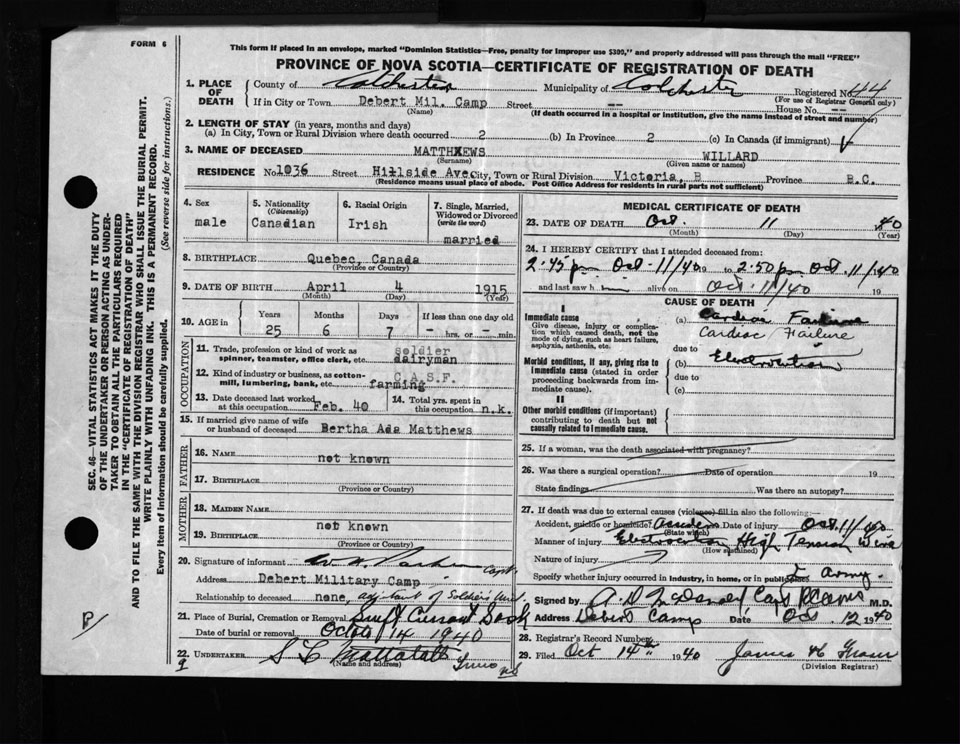 FORM 6
This form if placed in an envelope, marked "Dominion Statistics—Free, penalty for improper use $300," and properly addressed will pass through the mail "FREE"
PROVINCE OF NOVA SCOTIA—CERTIFICATE OF REGISTRATION OF DEATH
1. PLACE OF DEATH
County of Colchester Municipality of Colchester Registered No. 44
(For use of Registrar General only)
If in City or Town Debert Mil. Camp Street -- House No. --
(Name) (If death occurred in a hospital or institution, give the name instead of street and number)
2. LENGTH OF STAY (in years, months and days)
(a) In City, Town or Rural Division where death occurred 2 (b) In Province 2 (c) In Canada (if immigrant)
3. NAME OF DECEASED MATTHEWS WILLARD
(Surname) (Given name or names)
RESIDENCE No. 1036 Street Hillside Ave City, Town or Rural Division Victoria, B Province B.C.
(Residence means usual place of abode. Post Office Address for residents in rural parts not sufficient)
4. Sex male
5. Nationality (Citizenship) Canadian
6. Racial Origin Irish
7. Single, Married, Widowed or Divorced (write the word) married
8. BIRTHPLACE Quebec, Canada
(Province or Country)
9. DATE OF BIRTH April 4 1915
(Month) (Day) (Year)
10. AGE in Years Months Days If less than one day old
25 6 7 - hrs. or - min.
OCCUPATION
11. Trade, profession or kind of work as spinner, teamster, office clerk, etc. soldier dairyman
12. Kind of industry or business, as cotton-mill, lumbering, bank, etc. C.A.S.F. farming
13. Date deceased last worked at this occupation Feb. 40
14. Total yrs. spent in this occupation n.k.
15. If married give name of wife or husband of deceased Bertha Ada Matthews
FATHER
16. NAME not known
17. BIRTHPLACE
(Province or Country)
MOTHER
18. MAIDEN NAME
not known
19. BIRTHPLACE
(Province or Country)
20. Signature of informant Capt.
Address Debert Military Camp
Relationship to deceased none, adjutant of Soldiers Unit
21. Place of Burial, Cremation or Removal Swift Current Sask
Date of burial or removal Octo 14 1940
22. UNDERTAKER
(Name and address)
MEDICAL CERTIFICATE OF DEATH
23. DATE OF DEATH Oct. 11 40
(Month) (Day) (Year)
24. I HEREBY CERTIFY that I attended deceased from:
2:45 pm Oct. 11/40 19 to 2:50 pm Oct. 11/1940
and last saw h im alive on Oct. 11/40 19
CAUSE OF DEATH
I
Immediate cause
Give disease, injury or complication which caused death, not the mode of dying, such as heart failure, asphyxia, asthenia, etc.
(a) Cardiac Failure
Cardiac Failure
due to
Morbid conditions, if any, giving rise to immediate cause (stated in order proceeding backwards from immediate cause).
(b) Electrocution
due to
(c)
II
Other morbid conditions (if important) contributing to death but not causally related to immediate cause.
25. If a woman, was the death associated with pregnancy?
26. Was there a surgical operation? Date of operation 19
State findings Was there an autopsy?
27. If death was due to external causes (violence) fill in also the following:—
Accident, suicide or homicide? Accident Date of injury Oct. 11/1940
(State which)
Manner of injury Electrocution High Tension Wire
(How sustained)
Nature of injury
Specify whether injury occurred in industry, in home, or in public place Army.
Signed by A. D. McDonald Capt RCAMC M.D.
Address Debert Camp Date Oct. 12 1940
28. Registrar's Record Number
29. Filed Oct 14th 1940 James W Fraser
(Division Registrar)
SEC. 46—VITAL STATISTICS ACT MAKES IT THE DUTY
OF THE UNDERTAKER OR PERSON ACTING AS UNDER-
TAKER TO OBTAIN ALL THE PARTICULARS REQUIRED
IN THE "CERTIFICATE OF REGISTRATION OF DEATH"
AND TO FILE THE SAME WITH THE DIVISION REGISTRAR WHO SHALL ISSUE THE BURIAL PERMIT.
WRITE PLAINLY WITH UNFADING INK. THIS IS A PERMANENT RECORD.
Every item of information should be carefully supplied. (See reverse side for instructions.)